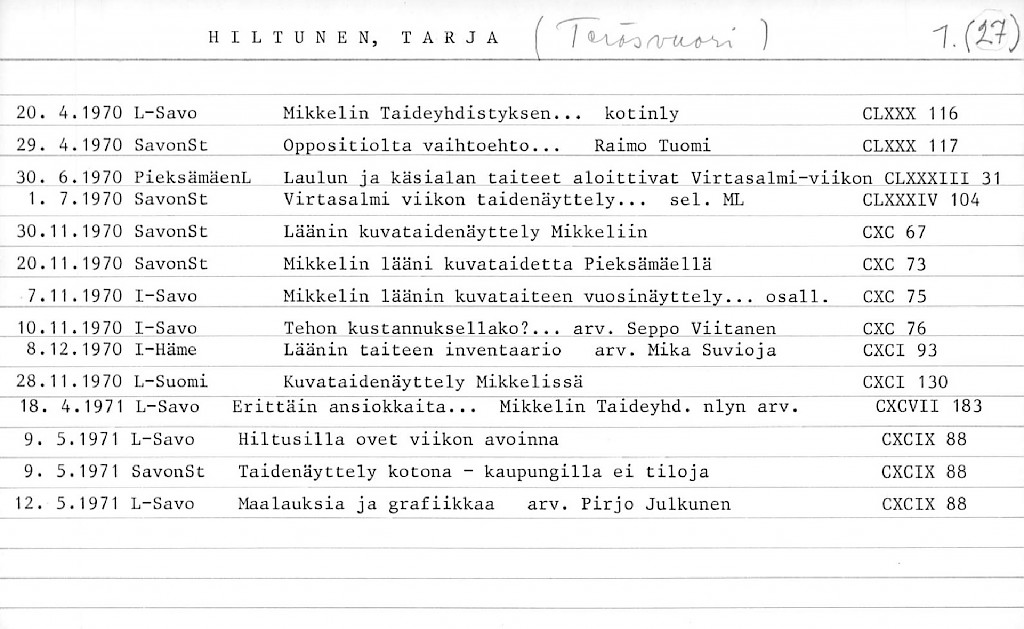 HILTUNEN, TARJA (Teräsvuori) 1.(27)
20. 4.1970 L-Savo Mikkelin Taideyhdistyksen... kotinly CLXXX 116
29. 4.1970 SavonSt Oppositiolta vaihtoehto... Raimo Tuomi CLXXX 117
30. 6.1970 PieksämäenL Laulun ja käsialan taiteet aloittivat Virtasalmi-viikon CLXXXIII 31
1. 7.1970 SavonSt Virtasalmi viikon taidenäyttely... sel. ML CLXXXIV 104
30.11.1970 SavonSt Läänin kuvataidenäyttely Mikkeliin CXC 67
20.11.1970 SavonSt Mikkelin lääni kuvataidetta Pieksämäellä CXC 73
7.11.1970 I-Savo Mikkelin läänin kuvataiteen vuosinäyttely... osall. CXC 75
10.11.1970 I-Savo Tehon kustannuksellako?... arv. Seppo Viitanen CXC 76
8.12.1970 I-Häme Läänin taiteen inventaario arv. Mika Suvioja CXCI 93
28.11.1970 L-Suomi Kuvataidenäyttely Mikkelissä CXCI 130
18. 4.1971 L-Savo Erittäin ansiokkaita... Mikkelin Taideyhd. nlyn arv. CXCVII 183
9. 5.1971 L-Savo Hiltusilla ovet viikon avoinna CXCIX 88
9. 5.1971 SavonSt Taidenäyttely kotona - kaupungilla ei tiloja CXCIX 88
12. 5.1971 L-Savo Maalauksia ja grafiikkaa arv. Pirjo Julkunen CXCIX 88